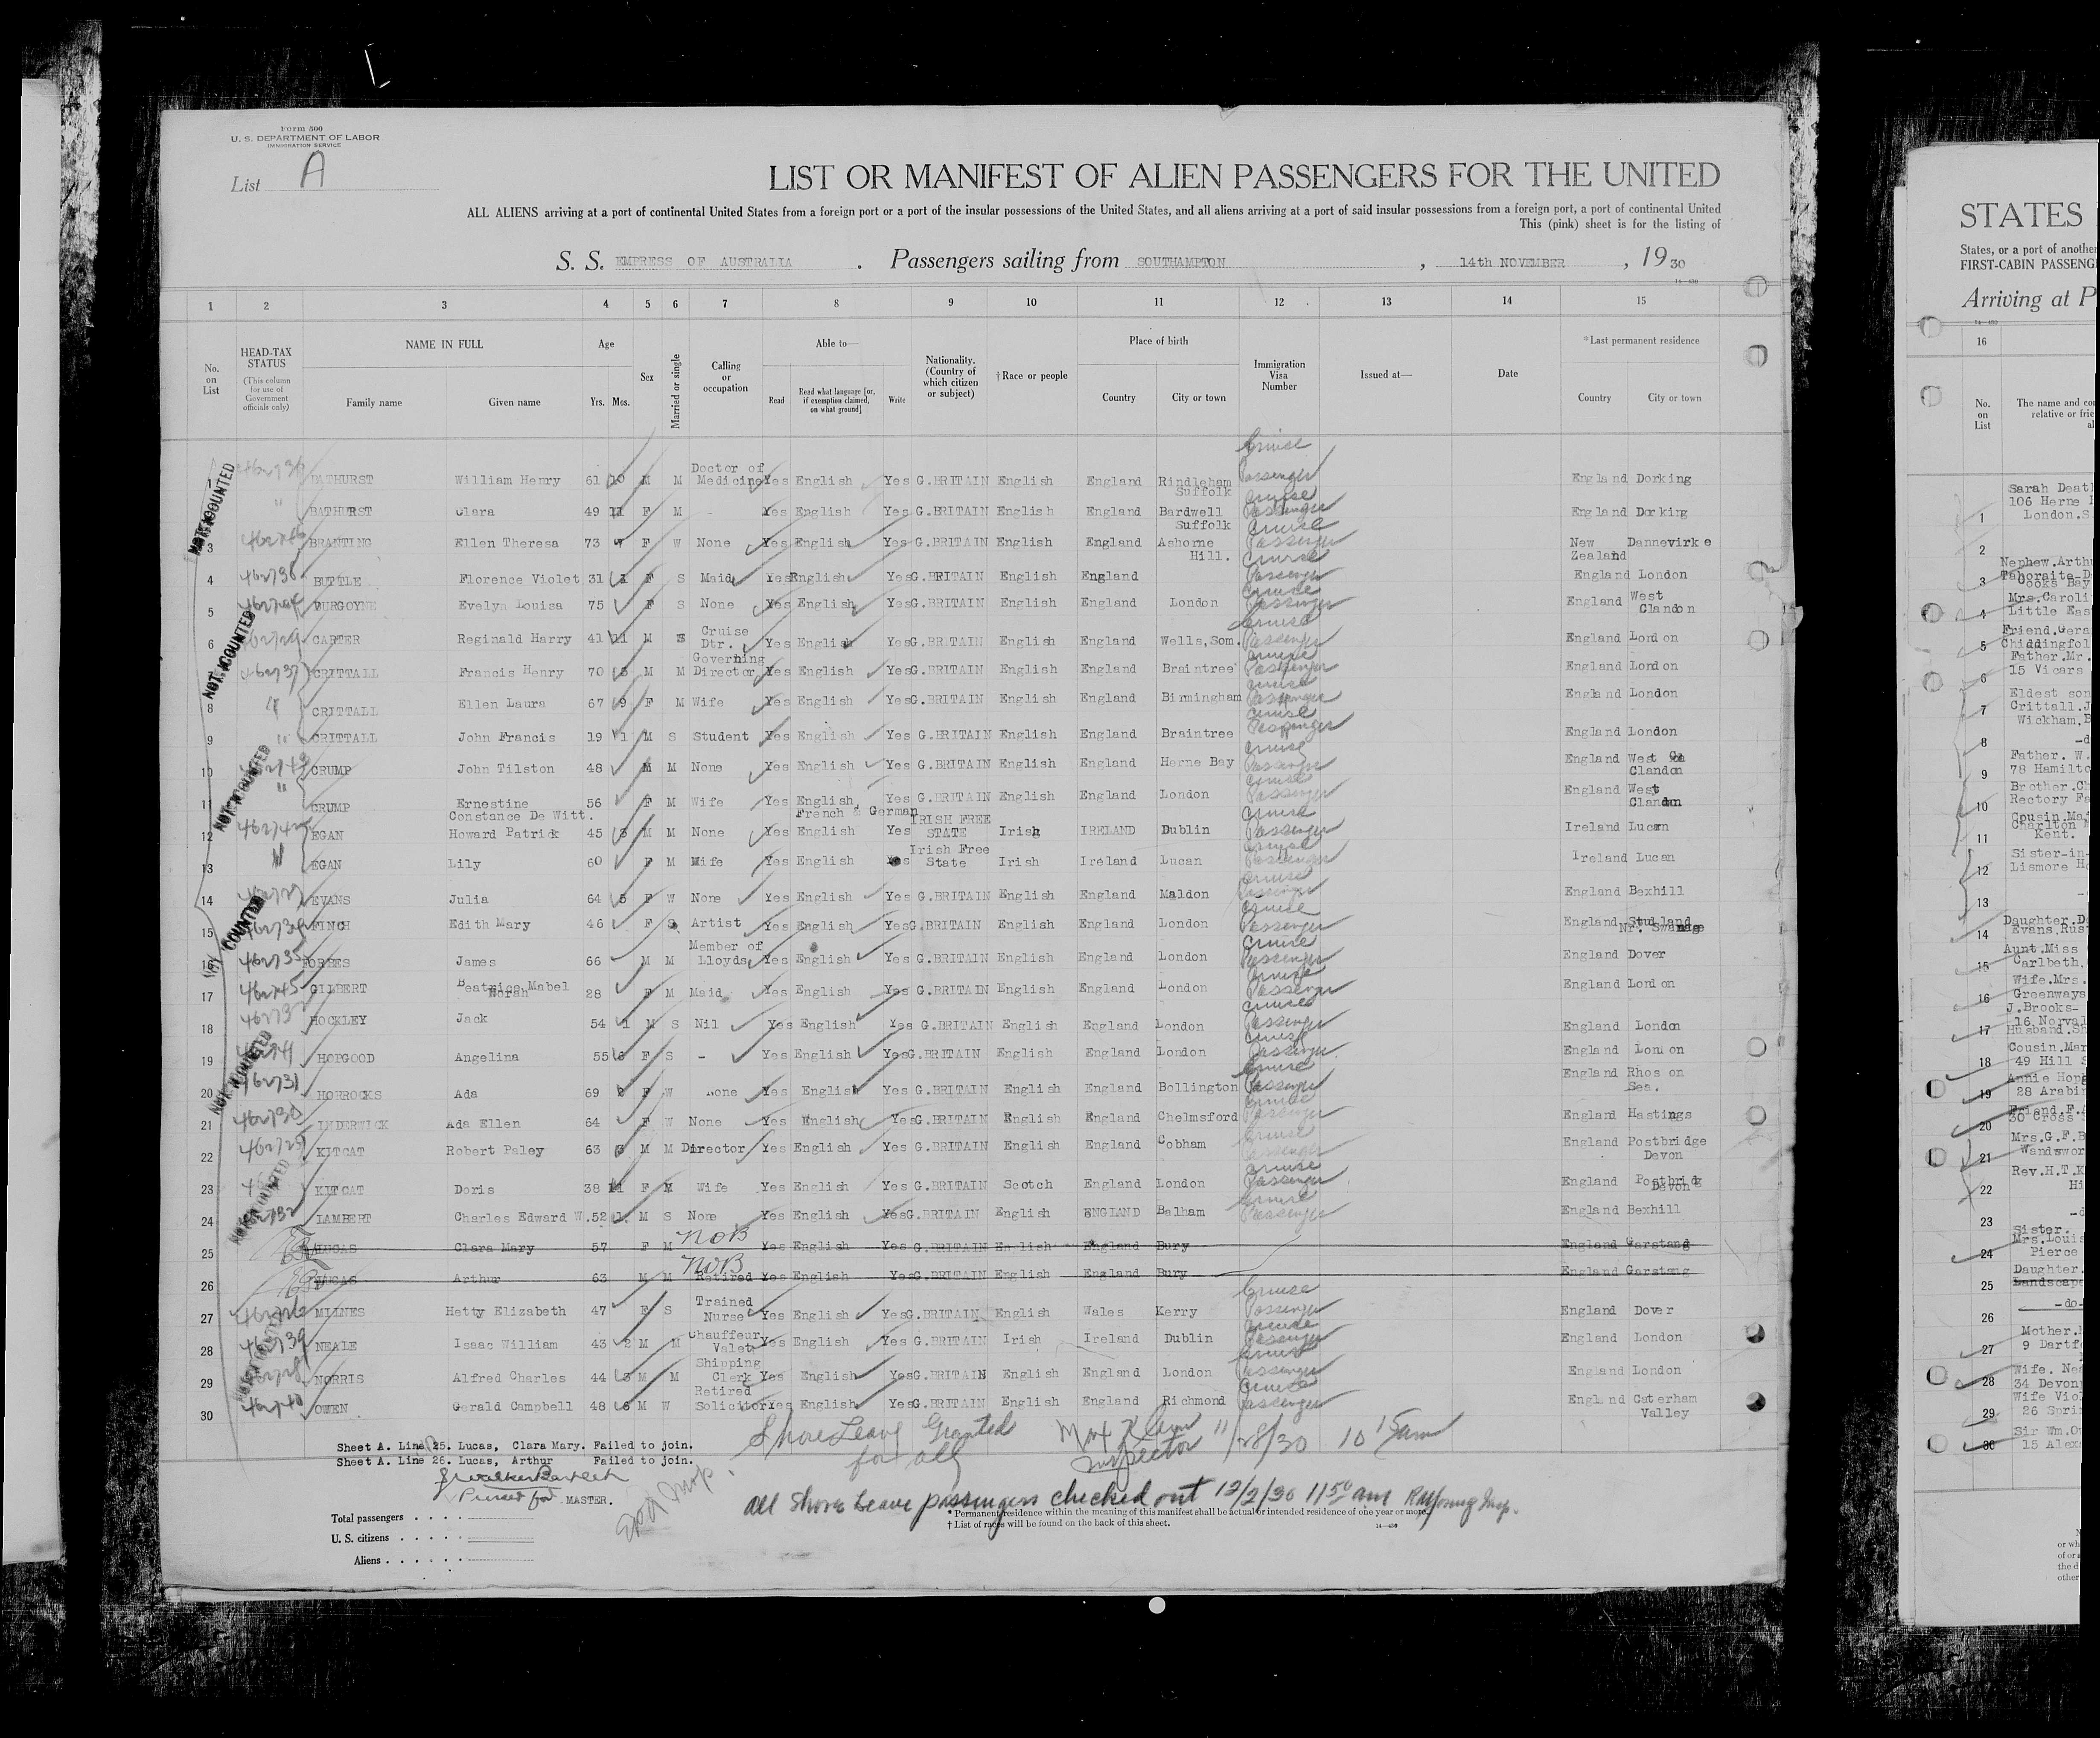 Form 500
U. S. DEPARTMENT OF LABOR
IMMIGRATION SERVICE
List A
LIST OR MANIFEST OF ALIEN PASSENGERS FOR THE UNITED
ALL ALIENS arriving at a port of continental United States from a foreign port or a port of the insular possessions of the United States, and all aliens arriving at a port of said insular possessions from a foreign port, a port of continental United
This (pink) sheet is for the listing of
S. S. EMPRESS OF AUSTRALIA . Passengers sailing from SOUTHAMPTON , 14th NOVEMBER , 1930
1 2 3 4 5 6 7 8 9 10 11 12 13 14 15
No. on List
HEAD-TAX STATUS (This column for use of Government officials only)
NAME IN FULL Family name Given name
Age Yrs. Mos.
Sex
Married or single
Calling or occupation
Able to— Read Read what language [or, if exemption claimed, on what ground] Write
Nationality. (Country of which citizen or subject)
†Race or people
Place of birth Country City or town
Immigration Visa Number
Issued at—
Date
*Last permanent residence Country City or town
1 BATHURST William Henry 61 10 M M Doctor of Medicine Yes English Yes G.BRITAIN English England Rindleham Suffolk Cruise Passenger England Dorking
BATHURST Clara 49 11 F M - Yes English Yes G.BRITAIN English England Bardwell Suffolk Cruise Passenger England Dorking
3 BRANTING Ellen Theresa 73 7 F W None Yes English Yes G.BRITAIN English England Ashorne Hill. Cruise Passenger New Zealand Dannevirke
4 462736 BUTTLE Florence Violet 31 1 F S Maid Yes English Yes G.BRITAIN English England Cruise Passenger England London
5 BURGOYNE Evelyn Louisa 75 F S None Yes English Yes G.BRITAIN English England London Cruise Passenger England West Clandon
6 CARTER Reginald Harry 41 11 M S Cruise Dtr. Yes English Yes G.BRITAIN English England Wells,Som. Cruise Passenger England London
7 462737 CRITTALL Francis Henry 70 5 M M Governing Director Yes English Yes G.BRITAIN English England Braintree Cruise Passenger England London
8 " CRITTALL Ellen Laura 67 9 F M Wife Yes English Yes G.BRITAIN English England Birmingham Cruise Passenger England London
9 " CRITTALL John Francis 19 1 M S Student Yes English Yes G.BRITAIN English England Braintree Cruise Passenger England London
10 CRUMP John Tilston 48 M M None Yes English Yes G.BRITAIN English England Herne Bay Cruise Passenger England West Clandon
11 " CRUMP Ernestine Constance De Witt. 56 F M Wife Yes English, French & German Yes G.BRITAIN English England London Cruise Passenger England West Clandon
12 462742 EGAN Howard Patrick 45 3 M M None Yes English Yes IRISH FREE STATE Irish IRELAND Dublin Cruise Passenger Ireland Lucan
13 EGAN Lily 60 F M Wife Yes English Yes Irish Free State Irish Ireland Lucan Cruise Passenger Ireland Lucan
14 EVANS Julia 64 5 F W None Yes English Yes G.BRITAIN English England Maldon Cruise Passenger England Bexhill
15 FINCH Edith Mary 46 F S Artist Yes English Yes G.BRITAIN English England London Cruise Passenger England Studland Nr. Swanage
16 462735 FORBES James 66 M M Member of Lloyds Yes English Yes G.BRITAIN English England London Cruise Passenger England Dover
17 462745 GILBERT Beatrice Mabel Norah 28 F M Maid Yes English Yes G.BRITAIN English England London Cruise Passenger England London
18 HOCKLEY Jack 54 1 M S Nil Yes English Yes G.BRITAIN English England London Cruise Passenger England London
19 HOPGOOD Angelina 55 6 F S - Yes English Yes G.BRITAIN English England London Cruise Passenger England London
20 462731 HORROCKS Ada 69 2 F W None Yes English Yes G.BRITAIN English England Bollington Cruise Passenger England Rhos on Sea.
21 462730 INDERWICK Ada Ellen 64 F W None Yes English Yes G.BRITAIN English England Chelmsford Cruise Passenger England Hastings
22 KITCAT Robert Paley 63 M M Director Yes English Yes G.BRITAIN English England Cobham Cruise Passenger England Postbridge Devon
23 KITCAT Doris 38 11 F M Wife Yes English Yes G.BRITAIN Scotch England London Cruise Passenger England Postbridge Devon
24 LAMBERT Charles Edward W. 52 1 M S None Yes English Yes G.BRITAIN English ENGLAND Balham Cruise Passenger England Bexhill
25 LUCAS Clara Mary 57 F M NOB Yes English Yes G.BRITAIN English England Bury England Garstang
26 LUCAS Arthur 63 M M NOB Retired Yes English Yes G.BRITAIN English England Bury England Garstang
27 MILNES Hetty Elizabeth 47 F S Trained Nurse Yes English Yes G.BRITAIN English Wales Kerry Cruise Passenger England Dover
28 NEALE Isaac William 43 2 M M Chauffeur Valet Yes English Yes G.BRITAIN Irish Ireland Dublin Cruise Passenger England London
29 NORRIS Alfred Charles 44 3 M M Shipping Clerk Yes English Yes G.BRITAIN English England London Cruise Passenger England London
30 OWEN Gerald Campbell 48 6 M W Retired Solicitor Yes English Yes G.BRITAIN English England Richmond Cruise Passenger England Caterham Valley
NOT COUNTED
NOT COUNTED
NOT COUNTED
NOT COUNTED
NOT COUNTED
Shore Leave Granted for all
Inspector 11/28/30 10 15am
Sheet A. Line 25. Lucas, Clara Mary. Failed to join.
Sheet A. Line 26. Lucas, Arthur Failed to join.
Purser for MASTER.
All Shore Leave passengers checked out 12/2/30 11 50 am
Total passengers . . . .
U. S. citizens . . . . .
Aliens . . . . . .
* Permanent residence within the meaning of this manifest shall be actual or intended residence of one year or more.
† List of races will be found on the back of this sheet.
STATES
States, or a port of another
FIRST-CABIN PASSENG
Arriving at P
16
No. on List
The name and co
relative or frie
1 Sarah Deat
106 Herne
London.S
2
3 Nephew.Arth
Cooks Bay
4 Mrs.Caroli
Little Eas
5 Friend.Gera
Chiddingfol
6 Father.Mr.
15 Vicars
7 Eldest son
Crittall.J
Wickham,B
8 -d
9 Father. W.
78 Hamilto
10 Brother.C
Rectory Fa
11 Cousin.Ma
Charlton
Kent.
12 Sister-in-
Lismore H
13
14 Daughter.D
Evans,Rus
15 Aunt.Miss
Carlbeth.
16 Wife.Mrs.
Greenways
17 J.Brooks-
16 Norval
Husband.S
18 Cousin.Mar
49 Hill S
19 Annie Hop
28 Arabi
20 Friend.F.A
30 Cross
21 Mrs.G.F.B
Wandswor
22 Rev.H.T.K
Hi
23 -d
24 Sister.
Mrs.Louis
Pierce
25 Daughter.
Landscape
26 -do-
27 Mother.
9 Dartf
28 Wife. Nea
34 Devon
29 Wife Vio
26 Spri
30 Sir Wm.O
15 Alex
or wh
of or a
the d
other